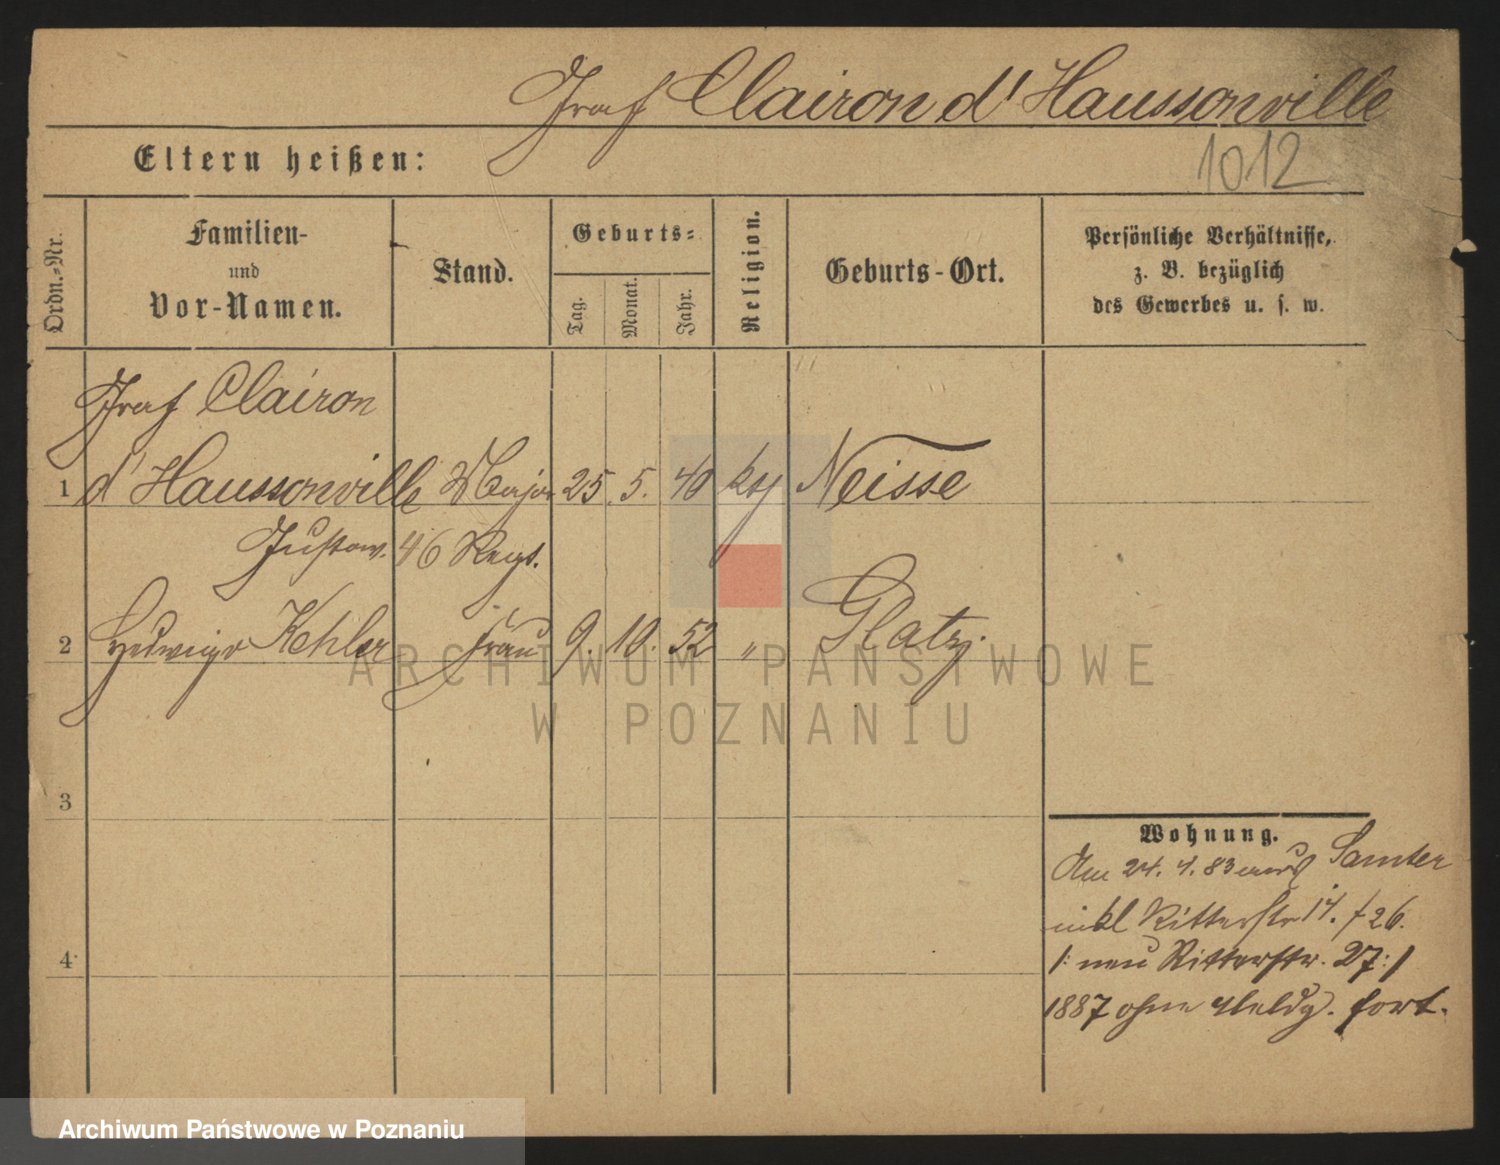 Graf Clairon d'Haussonville
Eltern heißen:
1012
Ordn.-Nr.
Familien-
und
Vor-Namen.
Stand.
Geburts-
Tag.
Monat.
Jahr.
Religion.
Geburts-Ort.
Persönliche Verhältnisse,
z. B. bezüglich
des Gewerbes u. s. w.
Graf Clairon
1 d'Haussonville Major 25. 5. 40 Neisse
Gustav. 46 Regt.
2 Hedwig Kehler Frau 9. 10. 52 " Glatz.
3
4
Wohnung.
Am 24. 4. 83 aus Samter
Ritterstr 14. / 26.
/: neu Ritterstr. 27 :/
1887 ohne Meldg. fort.
ARCHIWUM PAŃSTWOWE
W POZNANIU
Archiwum Państwowe w Poznaniu